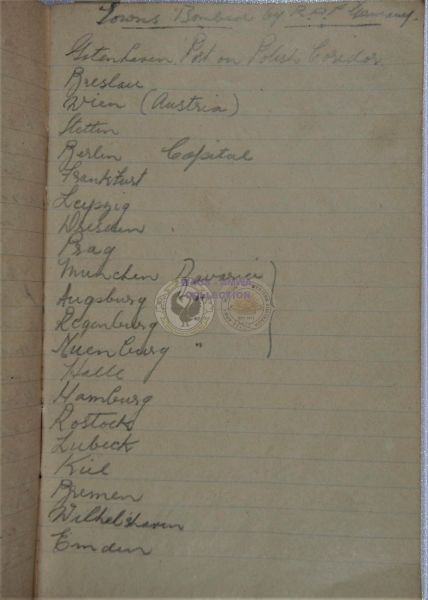 Towns Bombed by R.A.F Germany.
Gotenhaven Port on Polish Coridor
Breslau
Wien (Austria)
Stettin
Berlin Capital
Frankfurt
Leipzig
Dresden
Prag
Munchen Bavaria
Augsburg "
Regenburg "
Nuenburg "
Halle
Hamburg
Rostock
Lubeck
Kiel
Bremen
Wilhelshaven
Emden
COLLECTION